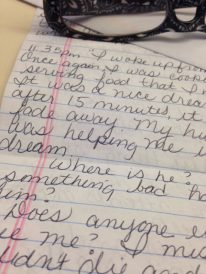 11:35pm I woke up from
Once again I was cook
serving food that I
It was a nice drea
after 15 minutes, it
fade away. My hu
was helping me i
dream
Where is he?
something bad ha
him?
Does anyone e
me? I mis
didn't die and